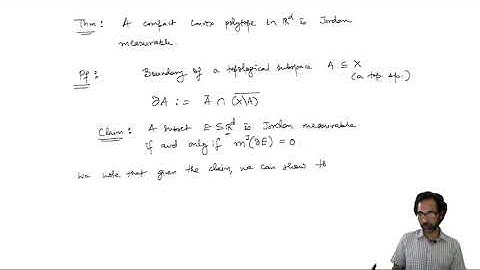 Thm: A compact convex polytope in ℝᵈ is Jordan
measurable.
Pf: Boundary of a topological subspace A ⊆ X
(a top. sp.)
∂A := Ā ∩ \overline{(X\A)}
Claim: A subset E ⊆ ℝᵈ is Jordan measurable
if and only if m^J(∂E) = 0
We note that given the claim, we can show th